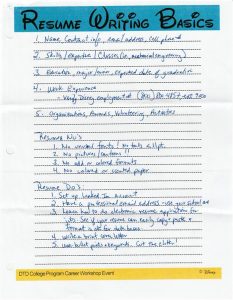 RESUME WRITING BASICS
1. Name, Contact info, email address, cell phone #
2. Skills/expertise/Classes (i.e.
3. Education, major/minor, expected date of graduation
4. Work Experience
- Verify Disney employment at
5. Organizations, Awards, Volunteering, Activities
Resume No's:
1. No unusual fonts
2. No pictures/
3. No odd or colored formats
4. No colored or scented paper
Resume Do's:
1. Set up
2. Have a professional email address - use your school
3. Learn how to do electronic resume application for
jobs. See if your resume can easily copy + paste +
format a lot for databases.
4. Write a
5. Use bullet points + keywords. Cut the
DTD College Program Career Workshop Event
Disney